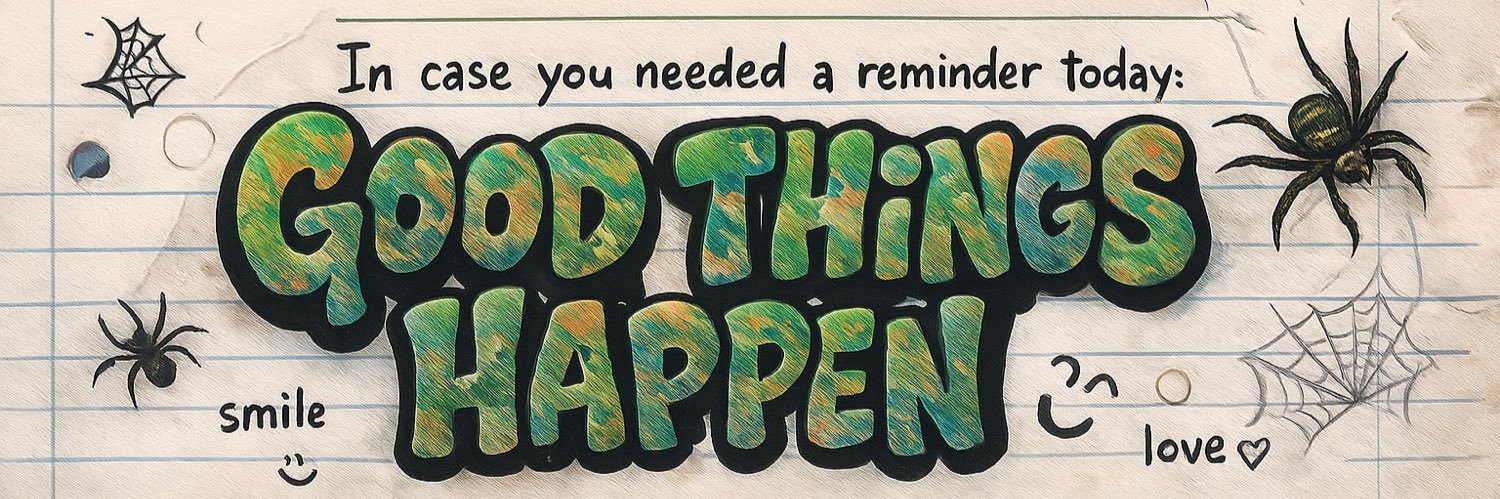 In case you needed a reminder today:
GOOD THiNGS
HAPPEN
smile
love